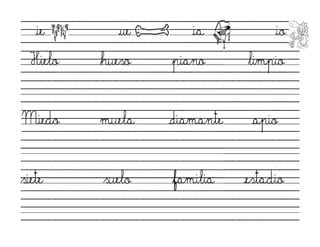 ie ue ia io
Hielo hueso piano limpio
Miedo muela diamante apio
siete suelo familia estadio